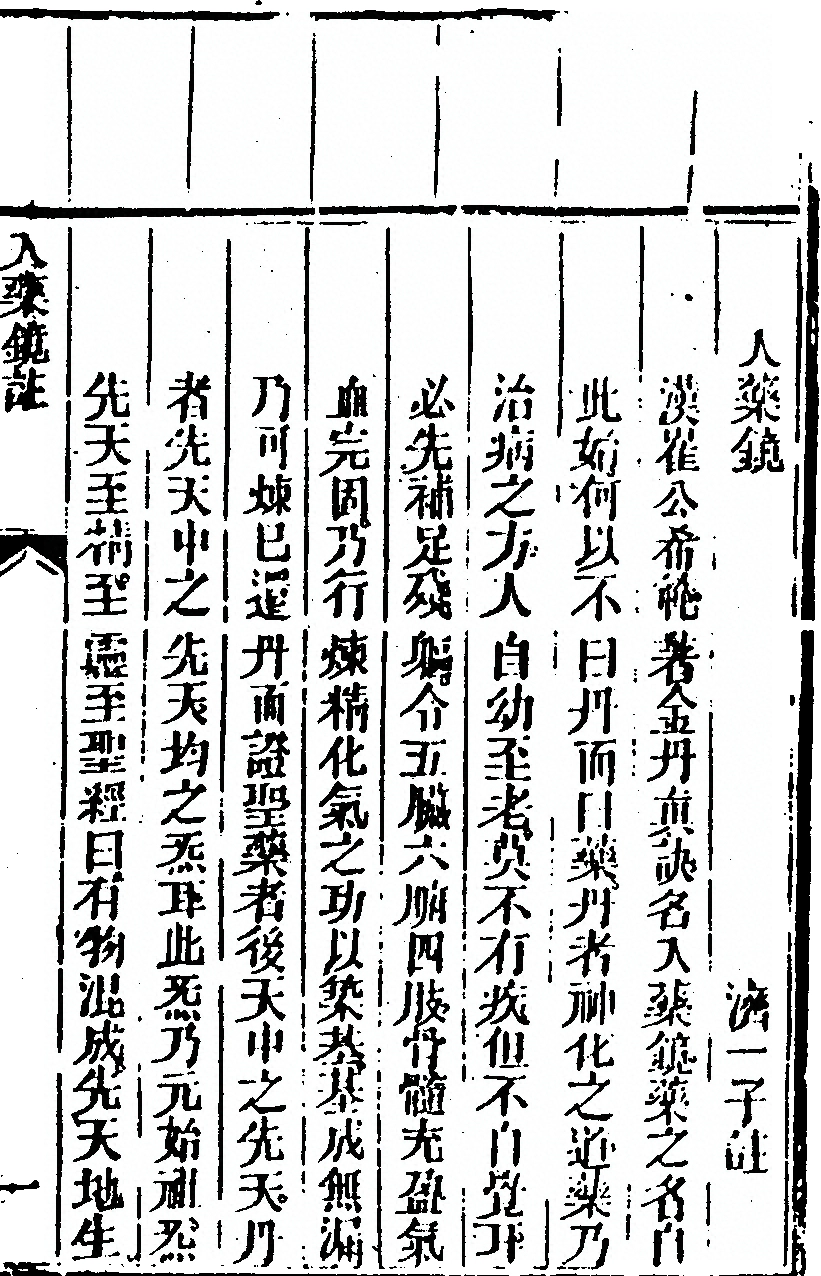 入藥鏡
濟一子註
漢崔公希範著金丹真訣名入藥鏡藥之名自
此始何以不曰丹而曰藥丹者神化之道藥乃
治病之方人自幼至老莫不有疾但不自覺耳
必先補足殘軀令五臟六腑四肢骨髓充盈氣
血完固乃行煉精化氣之功以築基基成無漏
乃可煉已還丹而證聖藥者後天中之先天丹
者先天中之先天均之炁耳此炁乃元始祖炁
先天至精至靈至聖經曰有物混成先天地生
入藥鏡註
一